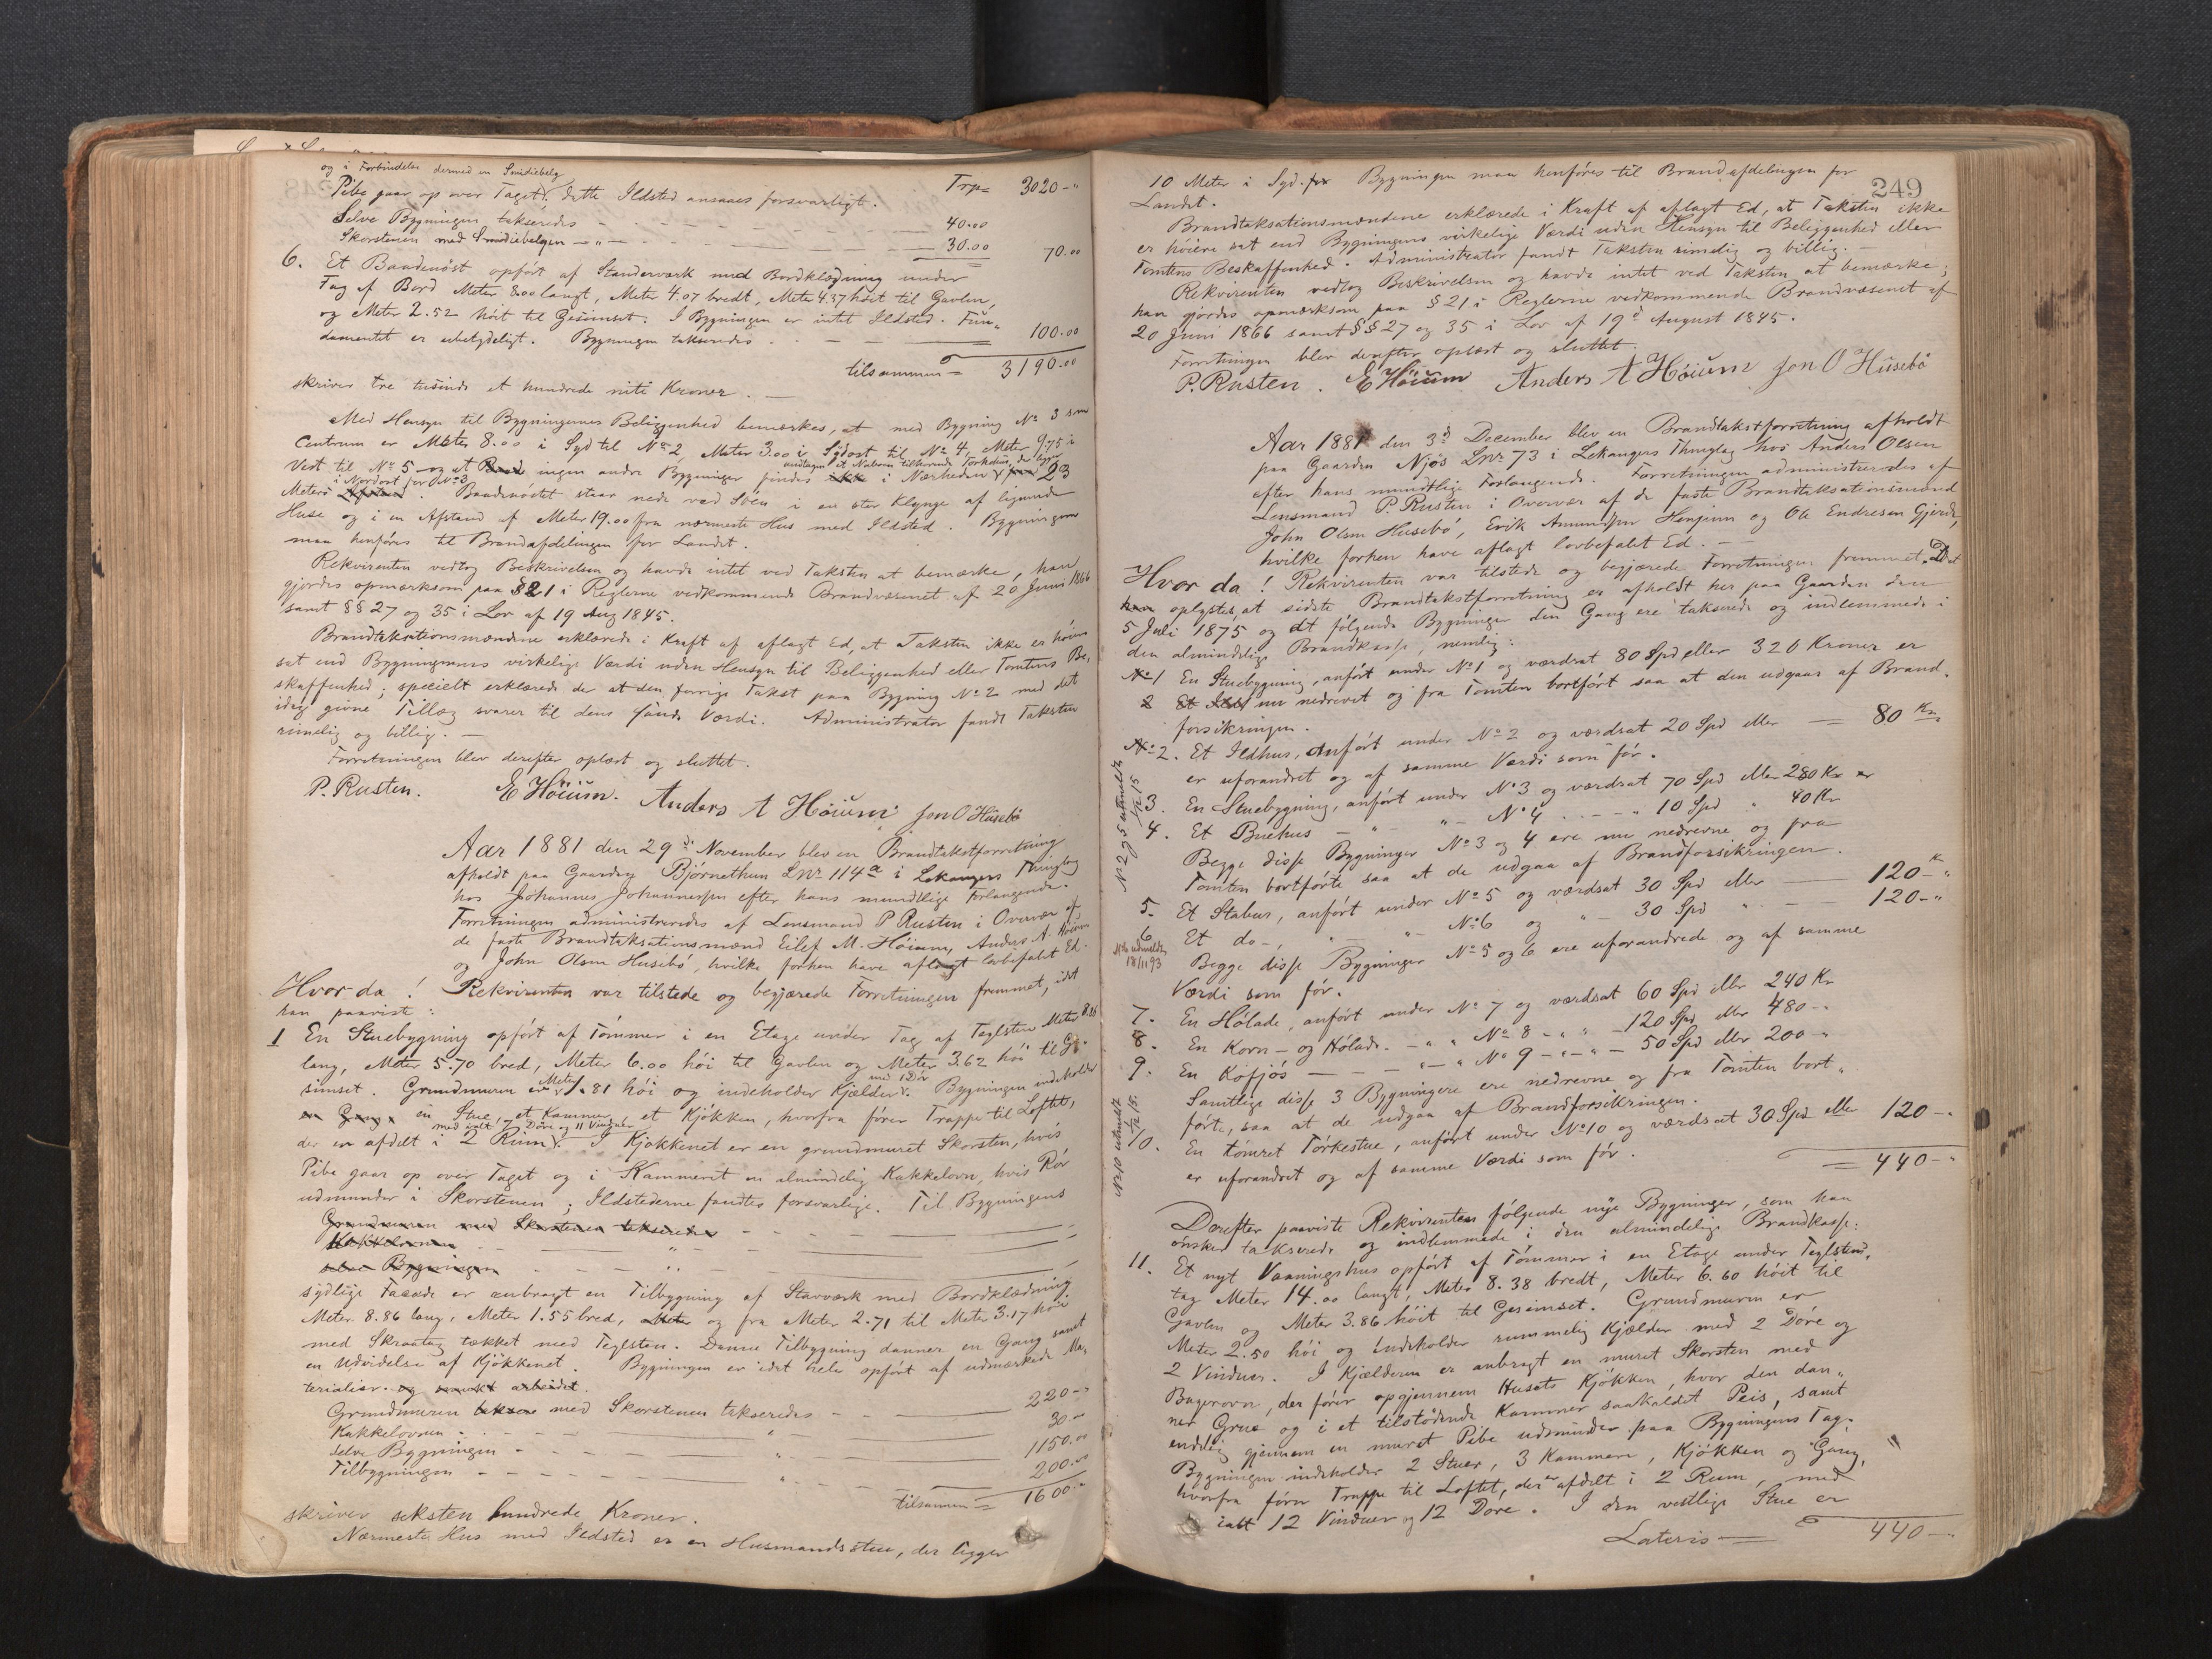 og i Forbindelse dermed en Smidiebelg
Pibe gaar op over Taget. Dette Ildsted ansaaes forsvarligt. Trp= 3020-"
Selve Bygningen takseredes - - - 40.00
Skorstenen med Smidiebelgen - " - - 30.00 70.00
6. Et Baadenöst opfört af Standerværk med Bordklædning under
Tag af Bord Meter 8.00 langt, Meter 4.07 bredt, Meter 4.37 höit til Gavlen,
og Meter 2.52 höit til Gesimset. I Bygningen er intet Ildsted. Fun-
damentet er ubetydeligt. Bygningen takseredes - - 100.00
tilsammen = 3190.00
skriver tre tusinde et hundrede niti Kroner. -
Med Hensyn til Bygningernes Beliggenhed bemærkes, at med Bygning No 3 som
Centrum er Meter 8.00 i Syd til No 2, Meter 3.00 i Sydost til No 4, Meter 9.75 i
Vest til No 5 og at ingen andre Bygninger findes ikke i Nærheden
undtagen et Naboen tilhörende Törkehus, der ligger 23
Meters i Nordost for No 3. Baadenöstet staar nede ved Söen i en stor Klynge af lignende
Huse og i en Afstand af Meter 19.00 fra nærmeste Hus med Ildsted. Bygningerne
maa henföres til Brandafdelingen for Landet.
Rekvirenten vedtog Beskrivelsen og havde intet ved Taksten at bemærke, han
gjordes opmærksom paa § 21 i Reglerne vedkommende Brandvæsenet af 20 Juni 1866
samt §§ 27 og 35 i Lov af 19 Aug 1845.
Brandtaksationsmændene erklærede i Kraft af aflagt Ed, at Taksten ikke er höiere
sat end Bygningernes virkelige Værdi uden Hensyn til Beliggenhed eller Tomtens Be-
skaffenhed; specielt erklærede de at den forrige Takst paa Bygning No 2 med det
idag givne Tillæg svarer til dens fünde Værdi. Administrator fandt Taksten
rimelig og billig. -
Forretningen blev derefter oplæst og sluttet.
P. Rusten. E Höium. Anders A Höium Jon O Husebö
Aar 1881 den 29de November blev en Brandtakstforretning
afholdt paa Gaarden Björnethun Lnr 114a i Lekanger Thinglag
hos Johannes Johannessen efter hans mundtlige Forlangende.
Forretningen administreredes af Lensmand P Rusten i Overvær af
de faste Brandtaksationsmænd Eilef M. Höium, Anders A. Höium
og John Olsen Husebö, hvilke forhen have aflagt lovbefalet Ed.
Hvor da! Rekvirenten var tilstede og begjærede Forretningen fremmet, idet
han paaviste:
1 En Stuebygning opfört af Tömmer i en Etage under Tag af Teglsten Meter 8.86
lang, Meter 5.70 bred, Meter 6.00 höi til Gavlen og Meter 3.62 höi til Ge-
simset. Grundmuren er Meter 1.81 höi og indeholder Kjælder med 1 Dör. Bygningen indeholder
en Gang, en Stue, et Kammer, et Kjökken, hvorfra förer Trappe til Loftet,
der er afdelt i 2 Rum med ialt 7 Döre og 11 Vinduer. I Kjökkenet er en grundmuret Skorsten, hvis
Pibe gaar op over Taget og i Kammeret en almindelig Kakkelovn, hvis Rör
udmunder i Skorstenen; Ildstederne fandtes forsvarlige. Til Bygningens
Grundmuren med Skorstenen takseredes - -
Kakkelovnen - - " -
selve Bygningen - - " -
sydlige Facade er anbragt en Tilbygning af Stavværk med Bordklædning
Meter 8.86 lang, Meter 1.55 bred, Meter og fra Meter 2.71 til Meter 3.17 höi
med Skraatag tækket med Teglsten. Denne Tilbygning danner en Gang samt
en Udvidelse af Kjökkenet. Bygningen er idet hele opfört af udmærkede Ma-
terialier. og smukt arbeidet.
Grundmuren med Skorstenen takseredes - - 220-"
Kakkelovnen - - " 30.-
Selve Bygningen - - " 1150.00
Tilbygningen - - " 200.00
tilsammen = 1600.-
skriver seksten hundrede Kroner.
Nærmeste Hus med Ildsted er en Husmandsstue, der ligger
249
10 Meter i Syd. for Bygningen maa henföres til Brandafdelingen for
Landet.
Brandtaksationsmændene erklærede i Kraft af aflagt Ed, at Taksten ikke
er höiere sat end Bygningens virkelige Værdi uden Hensyn til Beliggenhed eller
Tomtens Beskaffenhed. Administrator fandt Taksten rimelig og billig. -
Rekvirenten vedtog Beskrivelsen og havde intet ved Taksten at bemærke;
han gjordes opmærksom paa § 21 i Reglerne vedkommende Brandvæsenet af
20 Juni 1866 samt §§ 27 og 35 i Lov af 19de August 1845.
Forretningen blev derefter oplæst og sluttet.
P. Rusten. E Höium Anders A Höium Jon O Husebö
Aar 1881 den 3de December blev en Brandtakstforretning afholdt
paa Gaarden Njös Lnr 73 i Lekangers Thinglag hos Anders Olsen
efter hans mundtlige Forlangende. Forretningen administreredes af
Lensmand P. Rusten i Overvær af de faste Brandtaksationsmænd
John Olsen Husebö, Erik Amundsen Henjum og Ole Endresen Gjerde,
hvilke forhen have aflagt lovbefalet Ed. -
Hvor da! Rekvirenten var tilstede og begjærede Forretningen fremmet. Det
oplystes, at sidste Brandtakstforretning er afholdt her paa Gaarden den
5 Juli 1875 og at fölgende Bygninger den Gang ere takserede og indlemmede i
den almindelige Brandkasse, nemlig:
No 1 En Stuebygning, anfört under No 1 og værdsat 80 Spd eller 320 Kroner er
2 Et Ild nu nedrevet og fra Tomten bortfört saa at den udgaar af Brand-
forsikringen.
No 2. Et Ildhus, anfört under No 2 og værdsat 20 Spd eller - = 80 Kr
er uforandret og af samme Værdi som för.
3. En Stuebygning, anfört under No 3 og værdsat 70 Spd eller 280 Kr er
4. Et Buehus - " - " - No 4 . . - " 10 Spd " 40 Kr
Begge disse Bygninger No 3 og 4 ere nu nedrevne og fra
Tomten bortförte saa at de udgaa af Brandforsikringen.
5. Et Stabur, anfört under No 5 og værdsat 30 Spd eller - 120-"
6 Et do-, " - " - No 6 og " - 30 Spd " - 120-"
Begge disse Bygninger No 5 og 6 ere uforandrede og af samme
Værdi som för.
7. En Hölade, anfört under No 7 og værdsat 60 Spd eller 240 Kr
8. En Korn- og Hölade. - " " No 8 - " " - 120 Spd eller 480-"
9. En Kofjös - - - " - " No 9 - " - " - 50 Spd eller 200-"
Samtlige disse 3 Bygningere ere nedrevne og fra Tomten bort-
förte, saa at de udgaa af Brandforsikringen.
10. En tömret Törkestue, anfört under No 10 og værdsat 30 Spd eller 120-"
er uforandret og af samme Værdi som för.
= 440-"
No 2 og 5 udmeldt 15
No 6 udmeldt 18/11 93
No 10 udmeldt 15.
Derefter paaviste Rekvirenten fölgende nye Bygninger, som han
önsker takserede og indlemmede i den almindelige Brandkasse:
11. Et nyt Vaaningshus opfört af Tömmer i en Etage under Teglstens-
tag Meter 14.00 langt, Meter 8.38 bredt, Meter 6.60 höit til
Gavlen og Meter 3.86 höit til Gesimset. Grundmuren er
Meter 2.50 höi og indeholder rummelig Kjælder med 2 Döre og
2 Vinduer. I Kjælderen er anbragt en muret Skorsten med
Bagerovn, der förer opgjennem Husets Kjökken, hvor den dan-
ner Grue og i et tilstödende Kammer saakaldet Peis, samt
endelig gjennem en muret Pibe udmunder paa Bygningens Tag.
Bygningen indeholder 2 Stuer, 3 Kammere, Kjökken og Gang,
hvorfra förer Trappe til Loftet, der er afdelt i 2 Rum, med
ialt 12 Vinduer og 12 Döre. I den vestlige Stue er
Lateris = 440-"